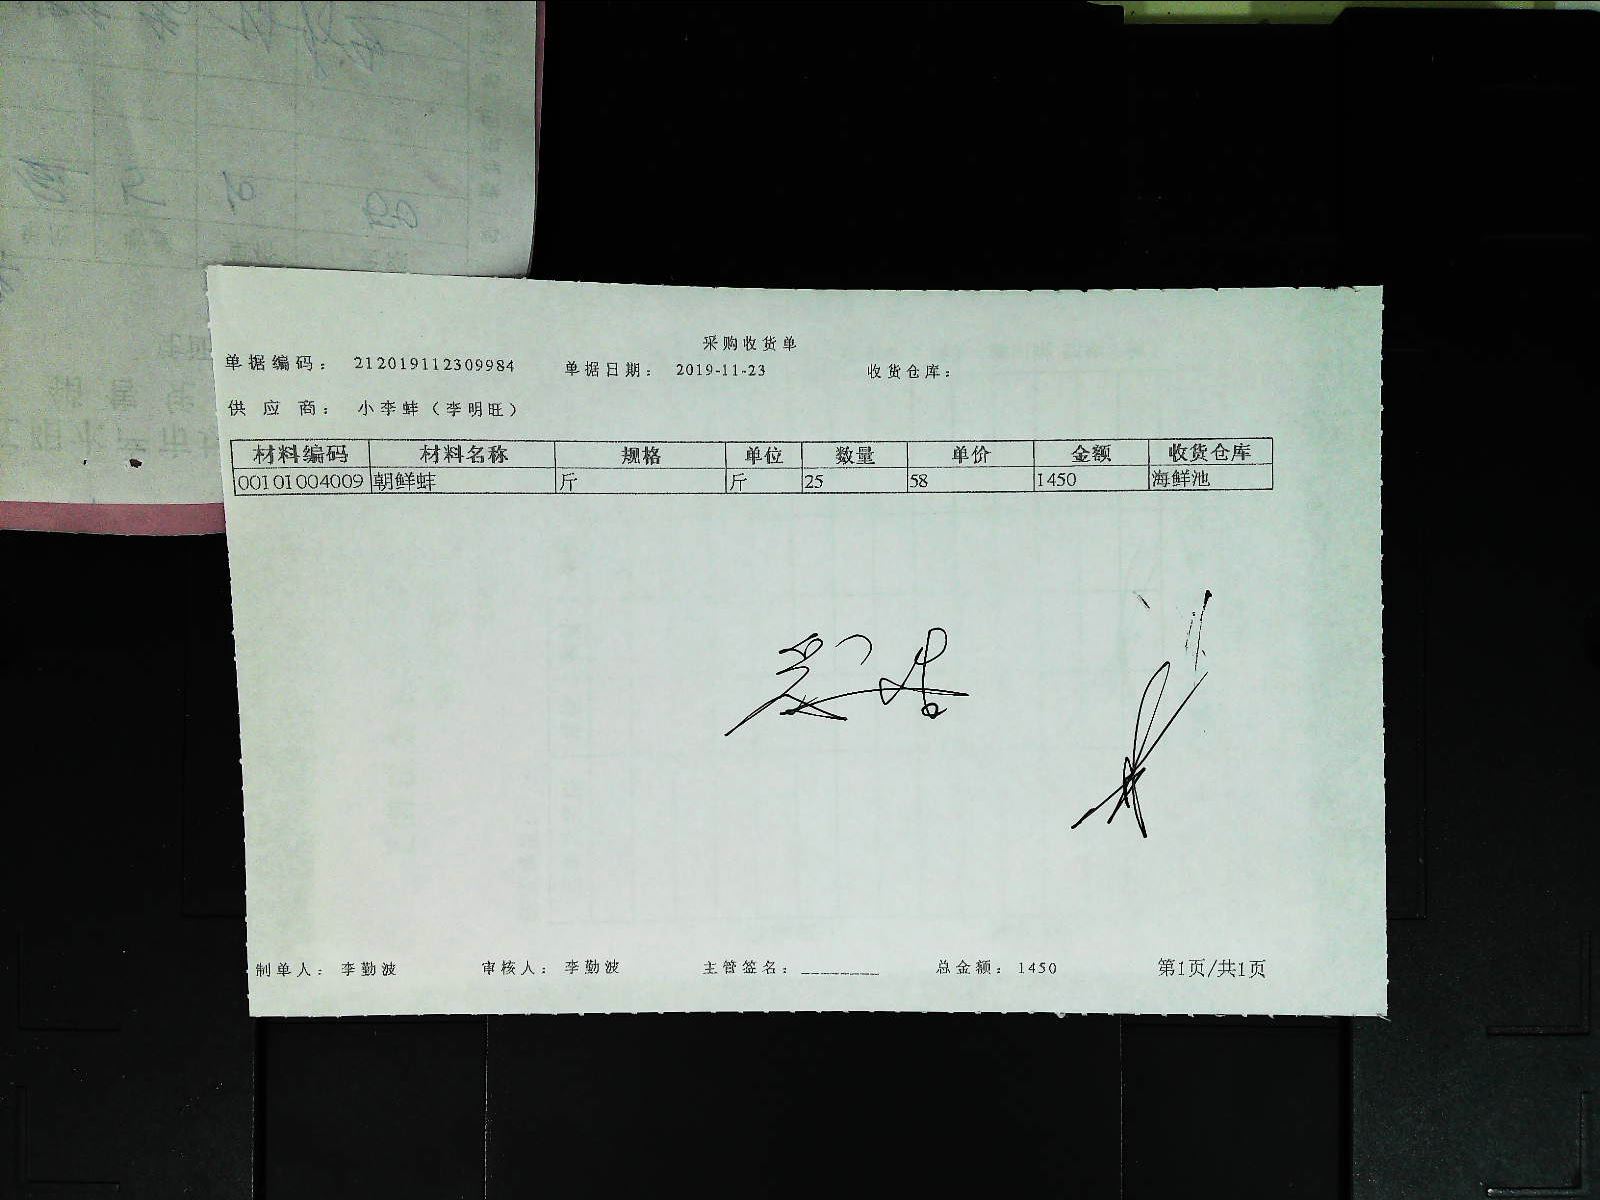 采购收货单
单据编码： 212019112309984 单据日期： 2019-11-23 收货仓库：
供 应 商： 小李蚌（李明旺）
材料编码 材料名称 规格 单位 数量 单价 金额 收货仓库
00101004009 朝鲜蚌 斤 斤 25 58 1450 海鲜池
制单人： 李勤波 审核人： 李勤波 主管签名：________ 总金额： 1450 第1页/共1页